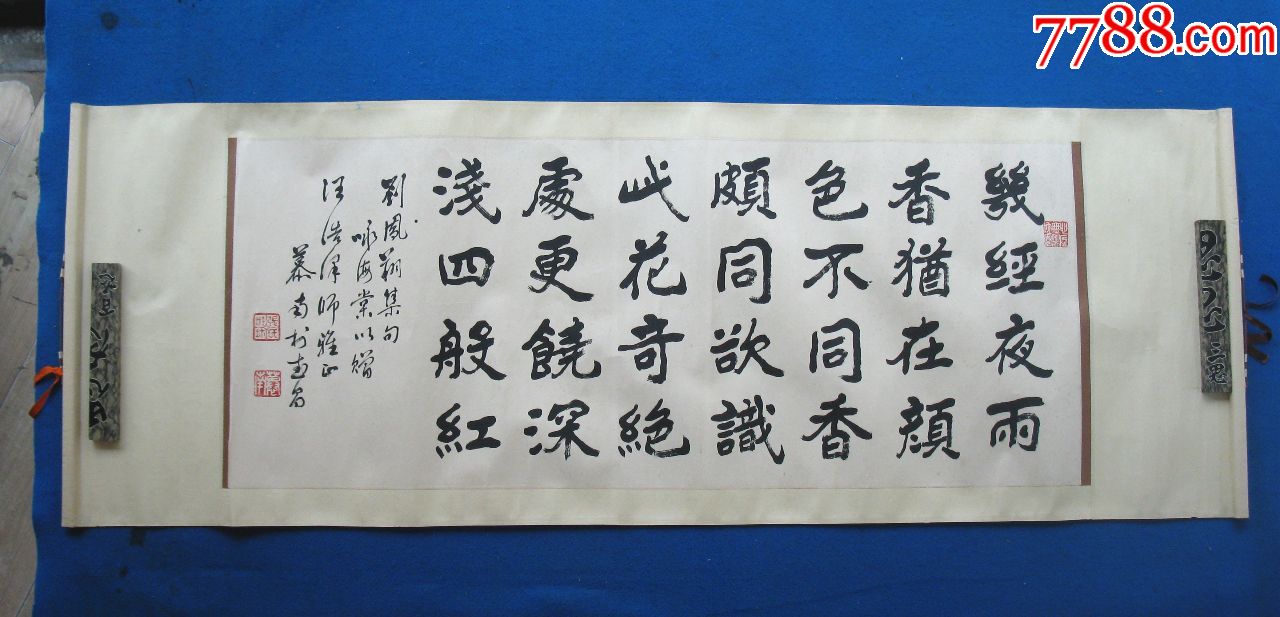 7788.com
幾經夜雨
香猶在顏
色不同香
頗同欲識
此花奇絕
處更饒深
淺四般紅
劉鳳翔集句
咏海棠以贈
汪浩澤師雅正
慕南